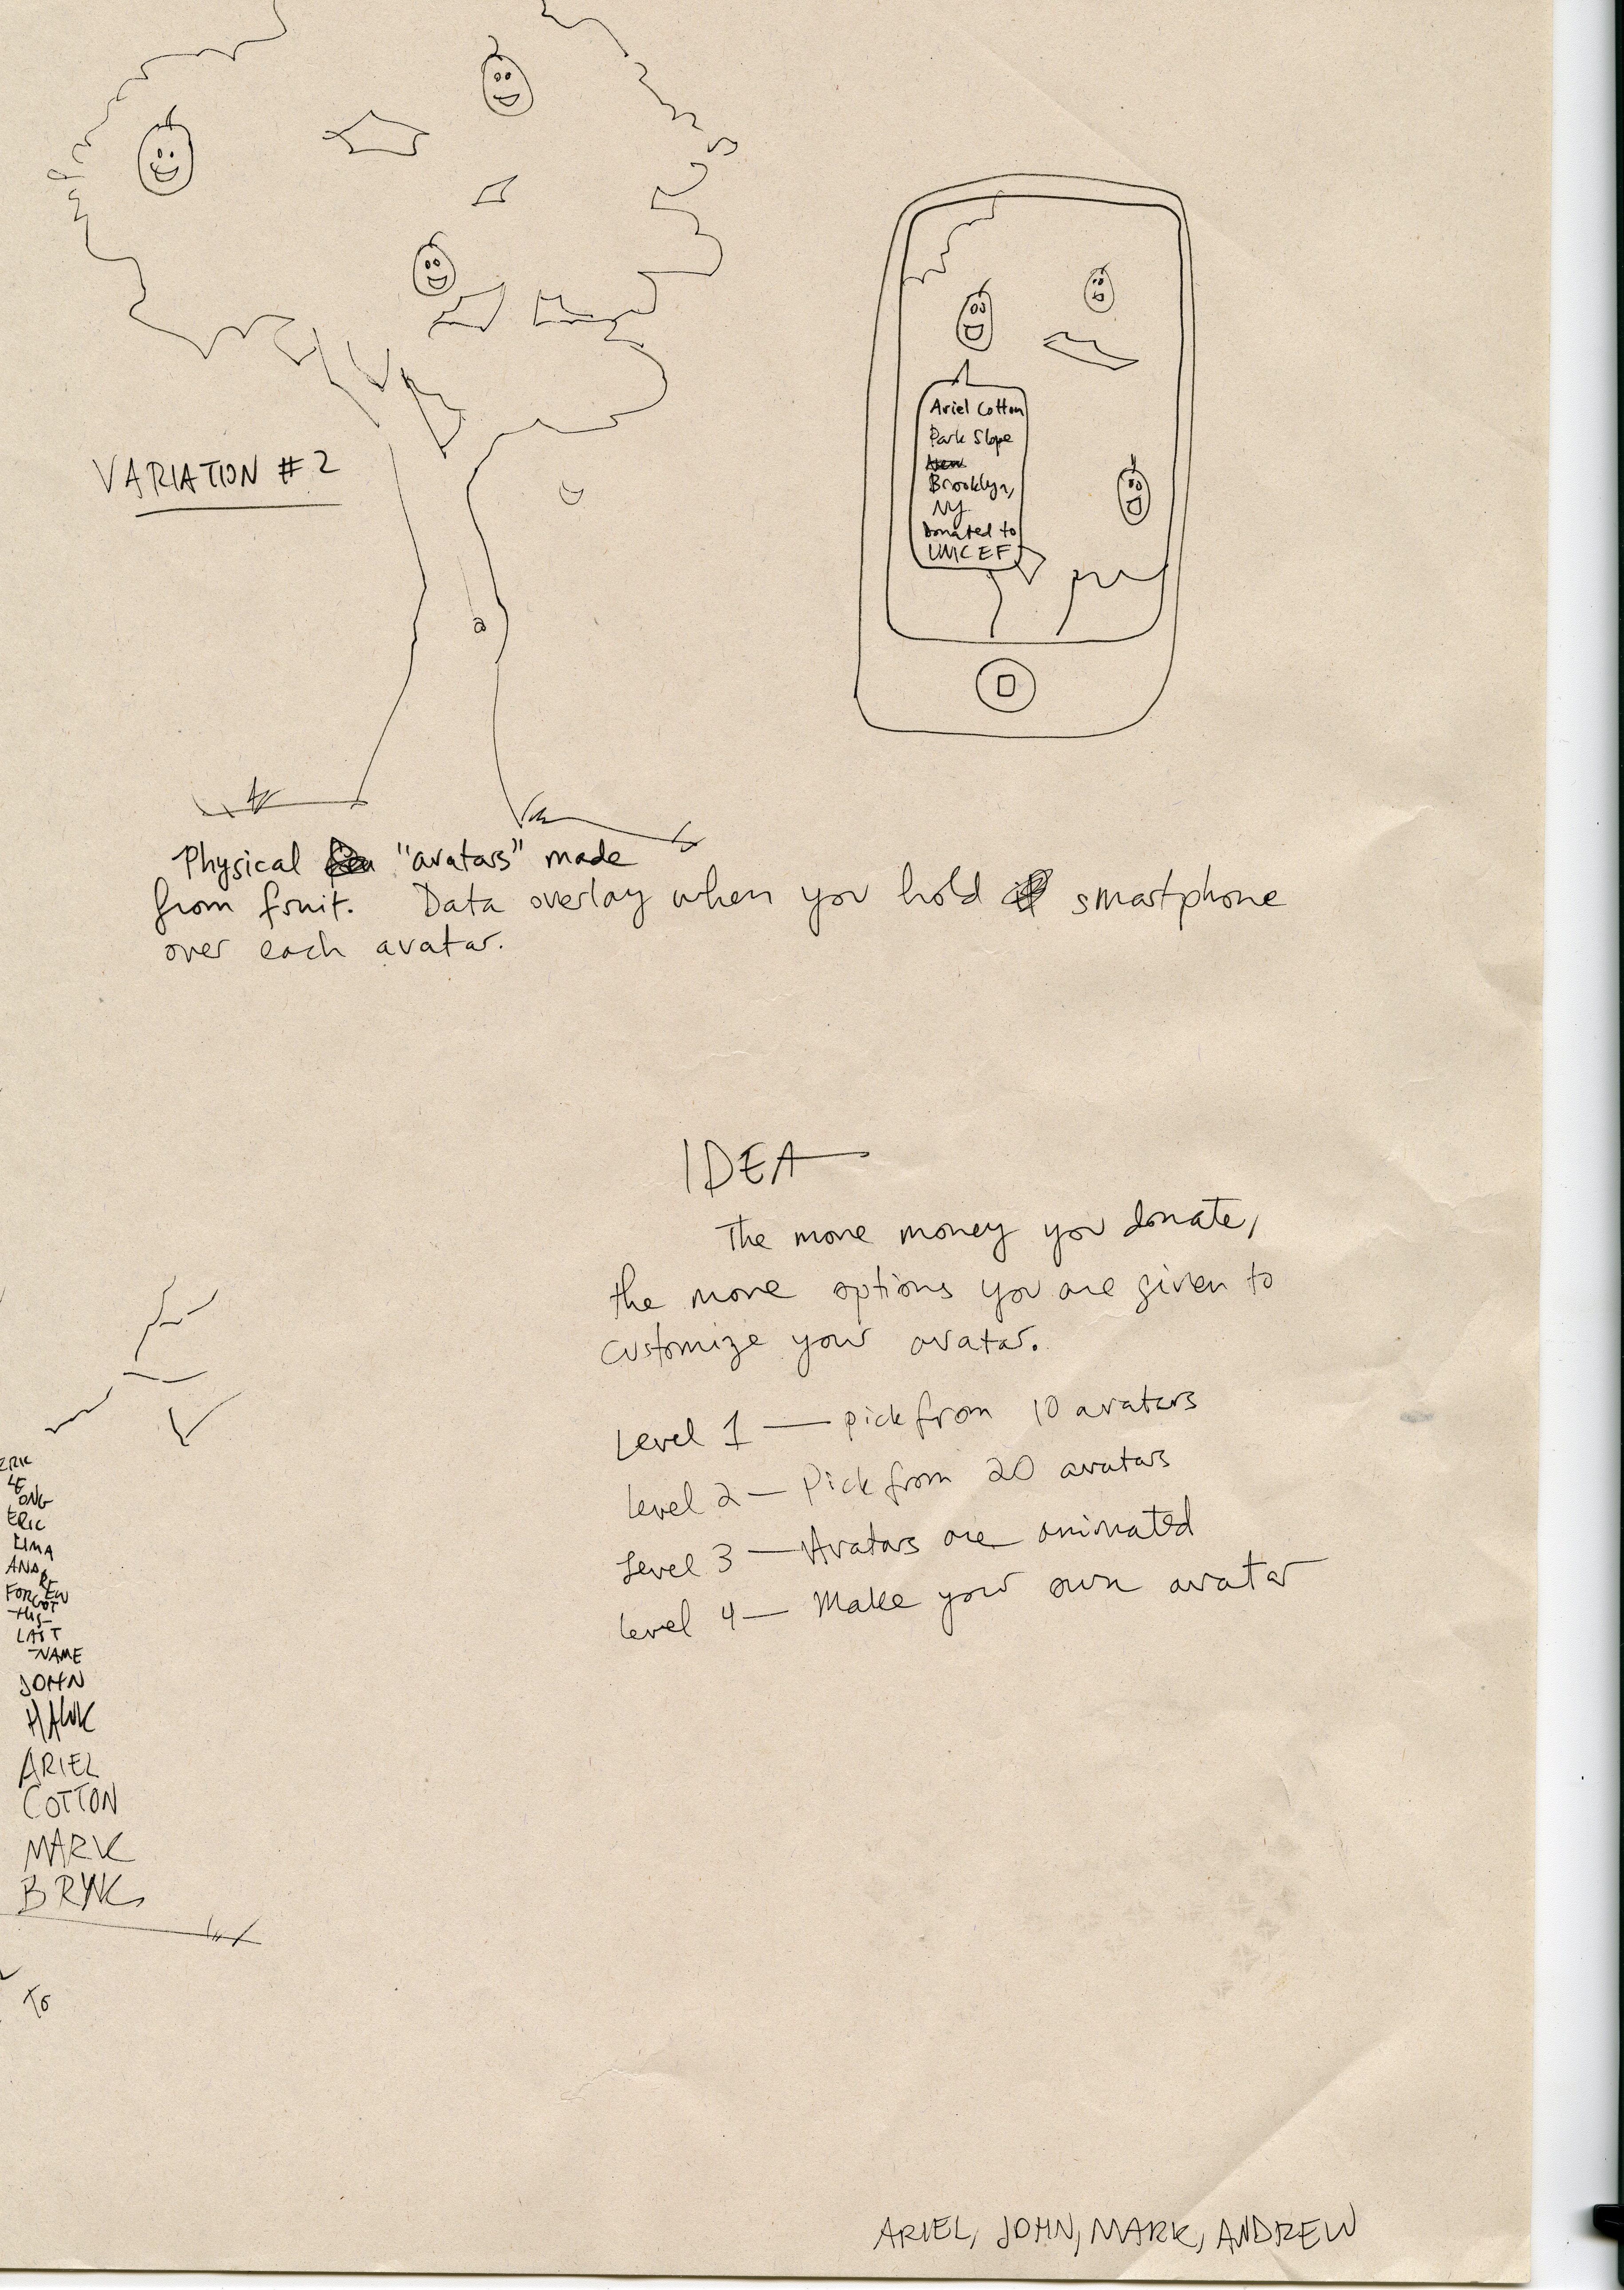 VARIATION #2
Ariel Cotton
Park Slope
Brooklyn,
NY
Donated to
UNICEF
Physical "avatars" made
from fruit. Data overlay when you hold smartphone
over each avatar.
IDEA
The more money you donate,
the more options you are given to
customize your avatar.
Level 1 — pick from 10 avatars
Level 2 — Pick from 20 avatars
Level 3 — Avatars are animated
Level 4 — Make your own avatar
ERIC
LE
ONG
ERIC
LIMA
ANDREW
FORGOT
HIS
LAST
NAME
JOHN
HAWK
ARIEL
COTTON
MARK
To
ARIEL, JOHN, MARK, ANDREW